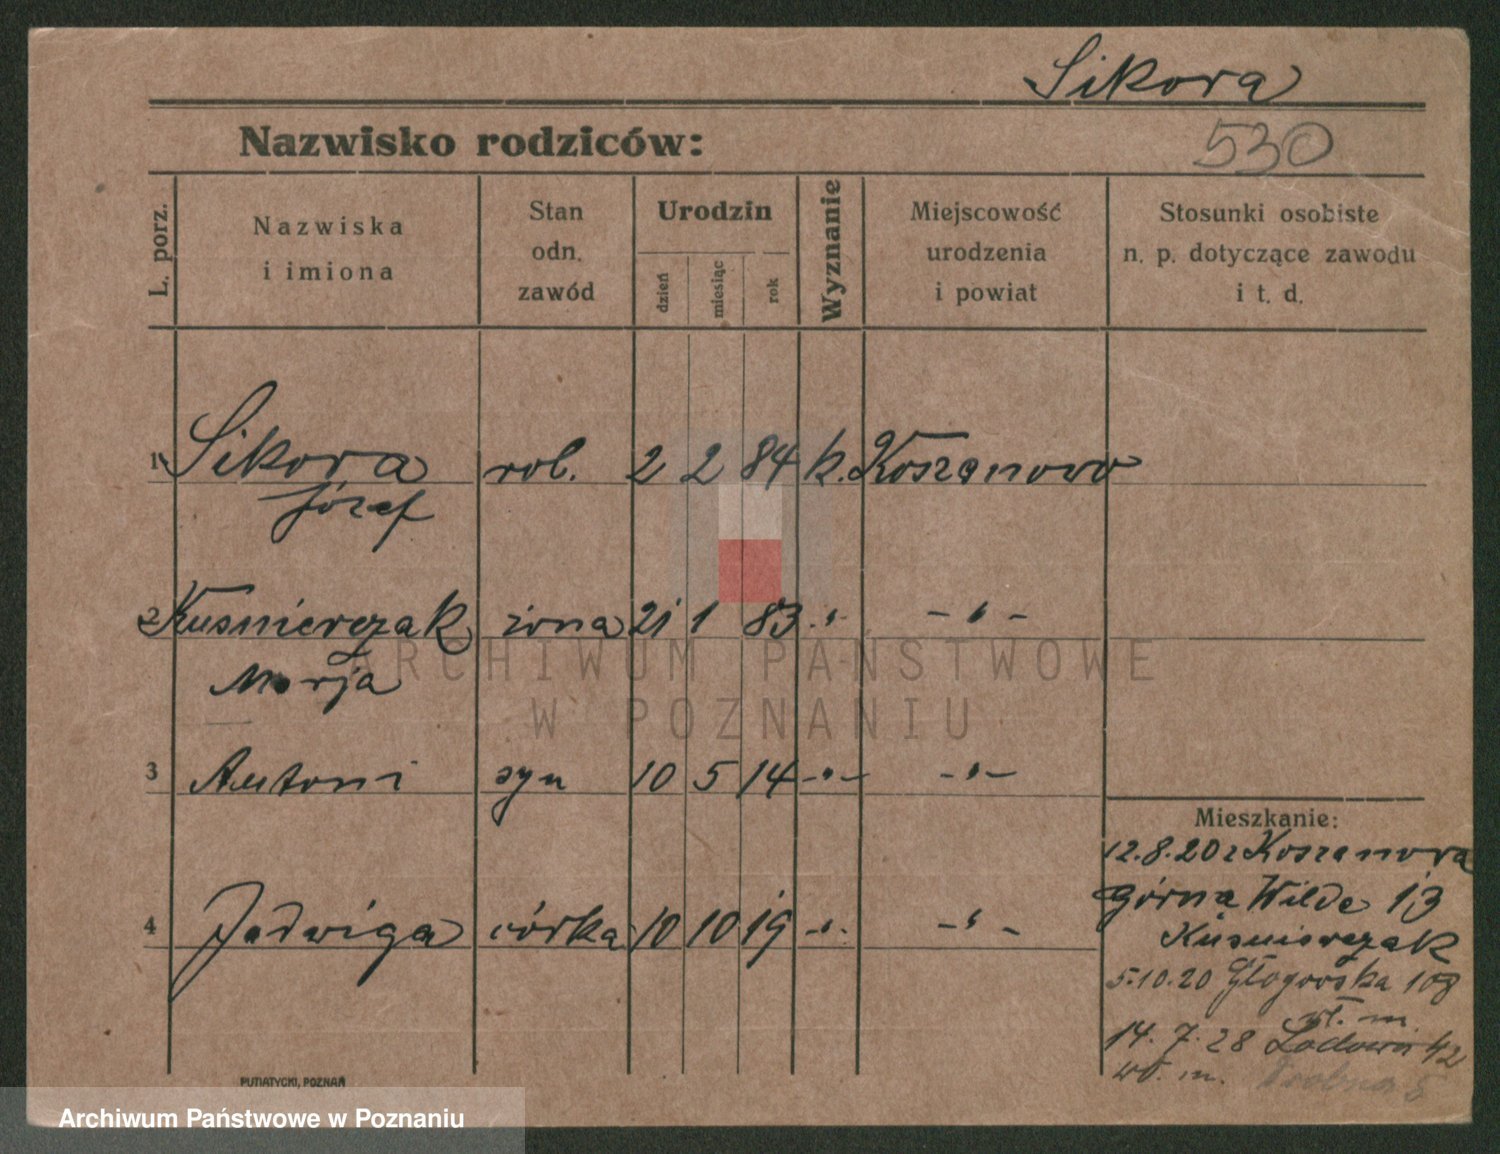 Sikora
Nazwisko rodziców:
530
L. porz.
Nazwiska
i imiona
Stan
odn.
zawód
Urodzin
dzień
miesiąc
rok
Wyznanie
Miejscowość
urodzenia
i powiat
Stosunki osobiste
n. p. dotyczące zawodu
i t. d.
1 Sikora rob. 2 2 84 k. Koszanowo
Józef
2 Kuśnierczak żona 21 1 83 -"- -"-
Marja
3 Antoni syn 10 5 14 -"- -"-
4 Jadwiga córka 10 10 19 -"- -"-
Mieszkanie:
12.8.20 z Koszanowa
Górna Wilda 13
Kuśnierczak
5.10.20 Głogowska 108
wł. m.
14. 7. 28 42
wł. m.
PUTIATYCKI, POZNAŃ
ARCHIWUM PAŃSTWOWE
W POZNANIU
Archiwum Państwowe w Poznaniu